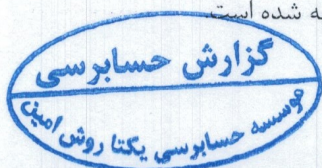 ه شده است
گزارش حسابرسی
موسسه حسابرسی یکتا روش امین